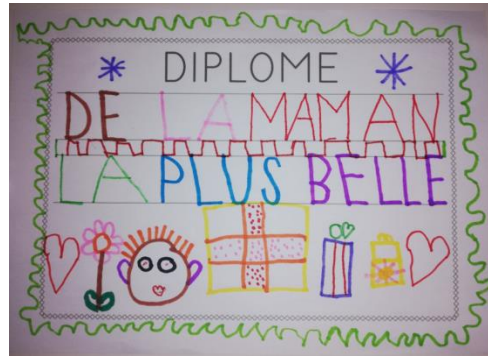 DIPLOME
DE LA MAMAN
LA PLUS BELLE